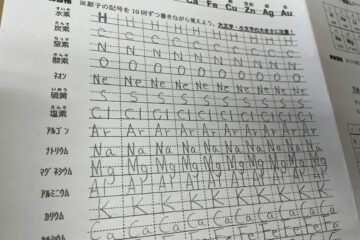 Ca Fe Cu Zn Ag Au
※原子の記号を10回ずつ書きながら覚えよう。大文字・小文字の大きさに注意!
すいそ
水素 H H H H H H H H H H
たんそ
炭素 C C C C C C C C C C
ちっそ
窒素 N N N N N N N N N N
さんそ
酸素 O O O O O O O O O O
ネオン Ne Ne Ne Ne Ne Ne Ne Ne Ne Ne
いおう
硫黄 S S S S S S S S S S
えんそ
塩素 Cl Cl Cl Cl Cl Cl Cl Cl Cl Cl
アルゴン Ar Ar Ar Ar Ar Ar Ar Ar Ar Ar
ナトリウム Na Na Na Na Na Na Na Na Na Na
マグネシウム Mg Mg Mg Mg Mg Mg Mg Mg Mg Mg
アルミニウム Al Al Al Al Al Al Al Al Al Al
カリウム K K K K K K K K K K
カルシウム Ca Ca Ca Ca Ca Ca Ca Ca Ca Ca